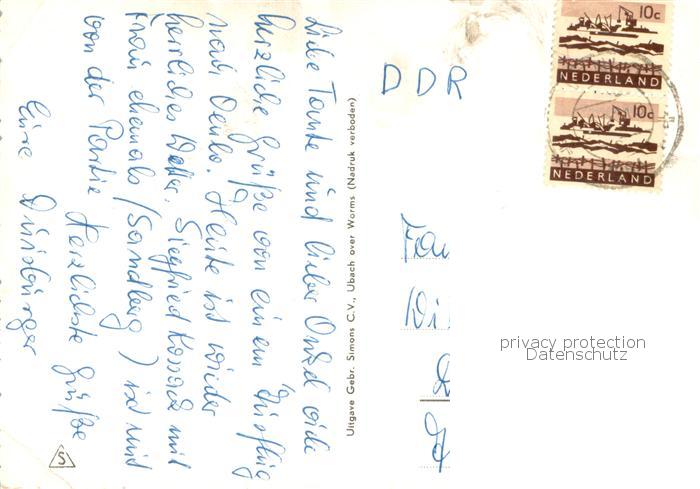 Liebe Tante und lieber Onkel viele
herzliche Grüße von einem Ausflug
nach Venlo. Heute ist wieder
herrliches Wetter. Siegfried Kossack mit
Frau ehemals (Sandberg) ist mit
von der Partie
Herzlichste Grüße
Eure Duisburger
Uitgave Gebr. Simons C.V., Ubach over Worms (Nadruk verboden)
S
DDR
10c
NEDERLAND
10c
NEDERLAND
Fam
privacy protection
Datenschutz